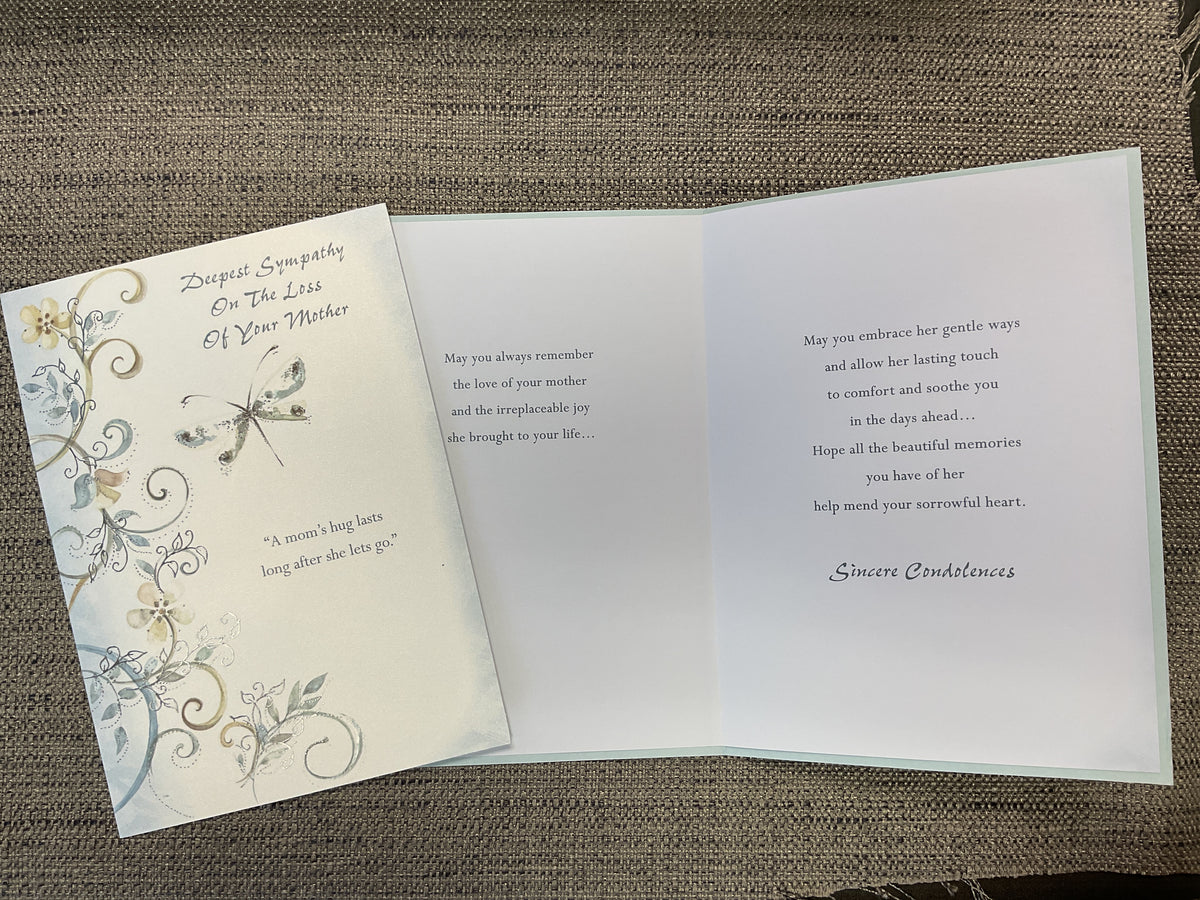 Deepest Sympathy
On The Loss
Of Your Mother
“A mom’s hug lasts
long after she lets go.”
May you always remember
the love of your mother
and the irreplaceable joy
she brought to your life…
May you embrace her gentle ways
and allow her lasting touch
to comfort and soothe you
in the days ahead…
Hope all the beautiful memories
you have of her
help mend your sorrowful heart.
Sincere Condolences